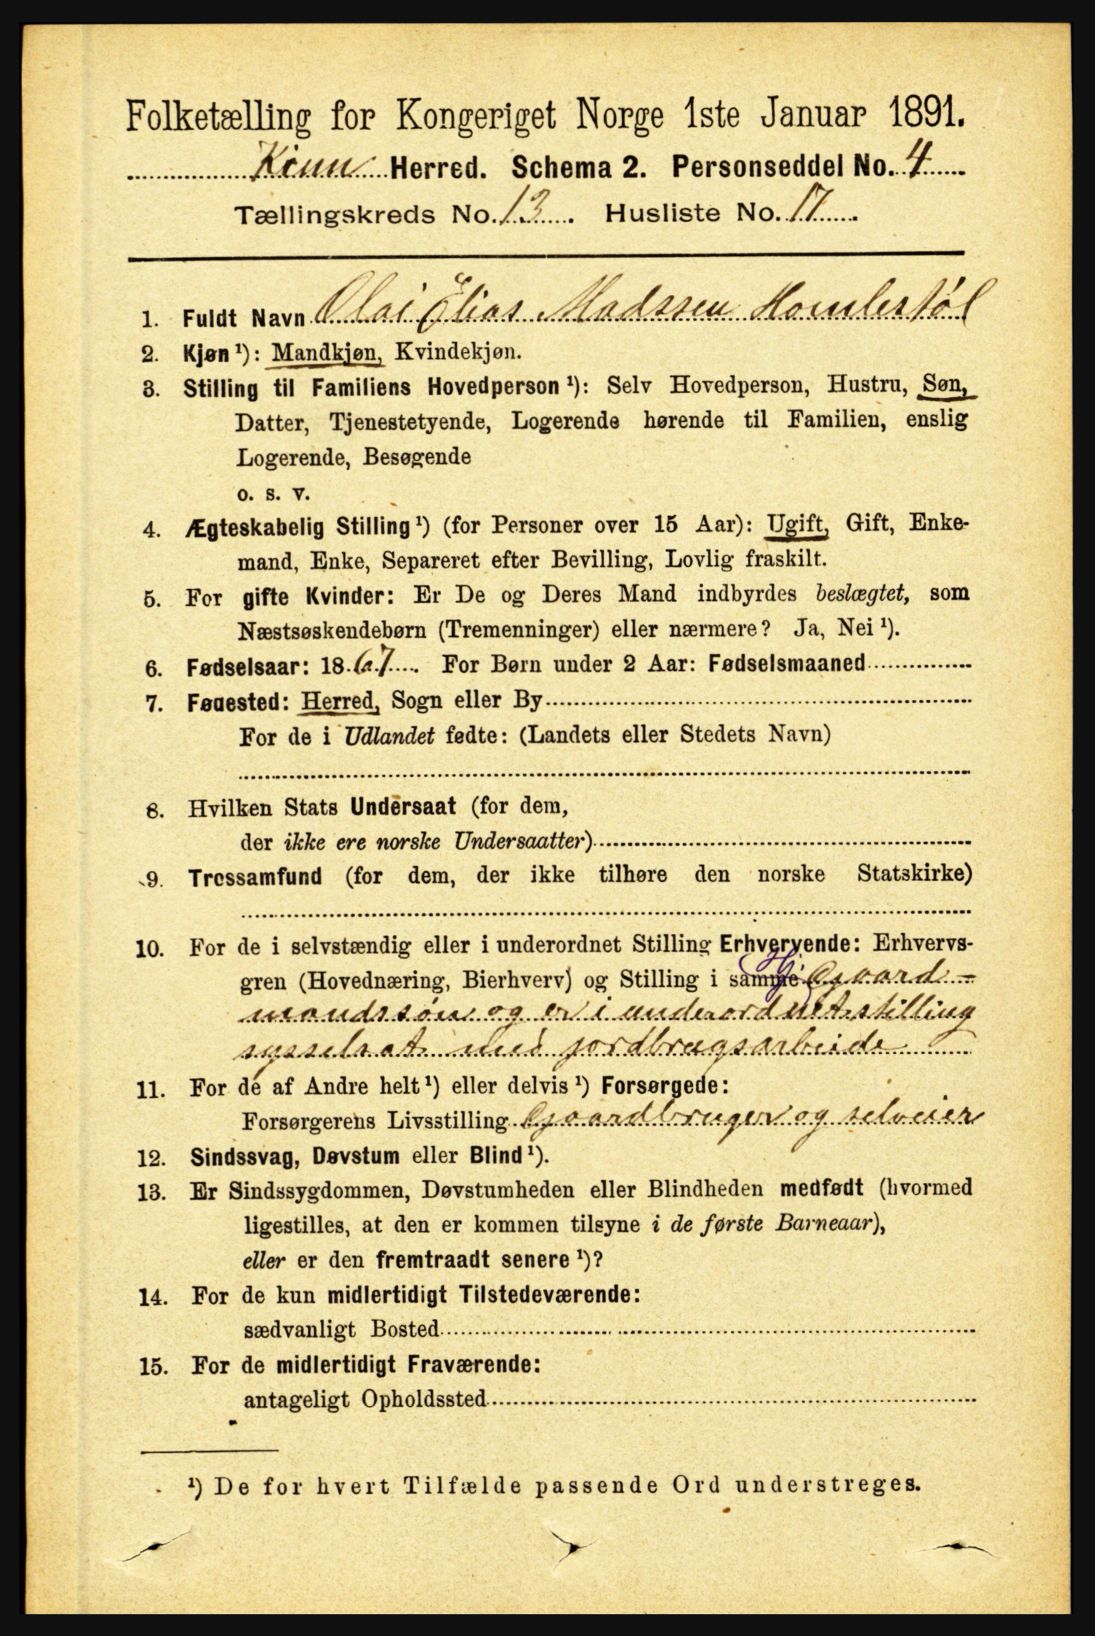 Folketælling for Kongeriget Norge 1ste Januar 1891.
Kinn Herred. Schema 2. Personseddel No. 4
Tællingskreds No. 13. Husliste No. 17.
1. Fuldt Navn Olai Elias Madssen Homlestøl
2. Kjøn ¹): Mandkjøn, Kvindekjøn.
3. Stilling til Familiens Hovedperson ¹): Selv Hovedperson, Hustru, Søn,
Datter, Tjenestetyende, Logerende hørende til Familien, enslig
Logerende, Besøgende
o. s. v.
4. Ægteskabelig Stilling ¹) (for Personer over 15 Aar): Ugift, Gift, Enke-
mand, Enke, Separeret efter Bevilling, Lovlig fraskilt.
5. For gifte Kvinder: Er De og Deres Mand indbyrdes beslægtet, som
Næstsøskendebørn (Tremenninger) eller nærmere? Ja, Nei ¹).
6. Fødselsaar: 1867. For Børn under 2 Aar: Fødselsmaaned
7. Fødested: Herred, Sogn eller By
For de i Udlandet fødte: (Landets eller Stedets Navn)
8. Hvilken Stats Undersaat (for dem,
der ikke ere norske Undersaatter)
9. Trossamfund (for dem, der ikke tilhøre den norske Statskirke)
10. For de i selvstændig eller i underordnet Stilling Erhvervende: Erhvervs-
gren (Hovednæring, Bierhverv) og Stilling i samme Hj. Gaard-
mandssøn og er i underordnet stilling
sysselsat med jordbrugsarbeide
11. For de af Andre helt ¹) eller delvis ¹) Forsørgede:
Forsørgerens Livsstilling Gaardbruger og selveier
12. Sindssvag, Døvstum eller Blind ¹).
13. Er Sindssygdommen, Døvstumheden eller Blindheden medfødt (hvormed
ligestilles, at den er kommen tilsyne i de første Barneaar),
eller er den fremtraadt senere ¹)?
14. For de kun midlertidigt Tilstedeværende:
sædvanligt Bosted
15. For de midlertidigt Fraværende:
antageligt Opholdssted
¹) De for hvert Tilfælde passende Ord understreges.